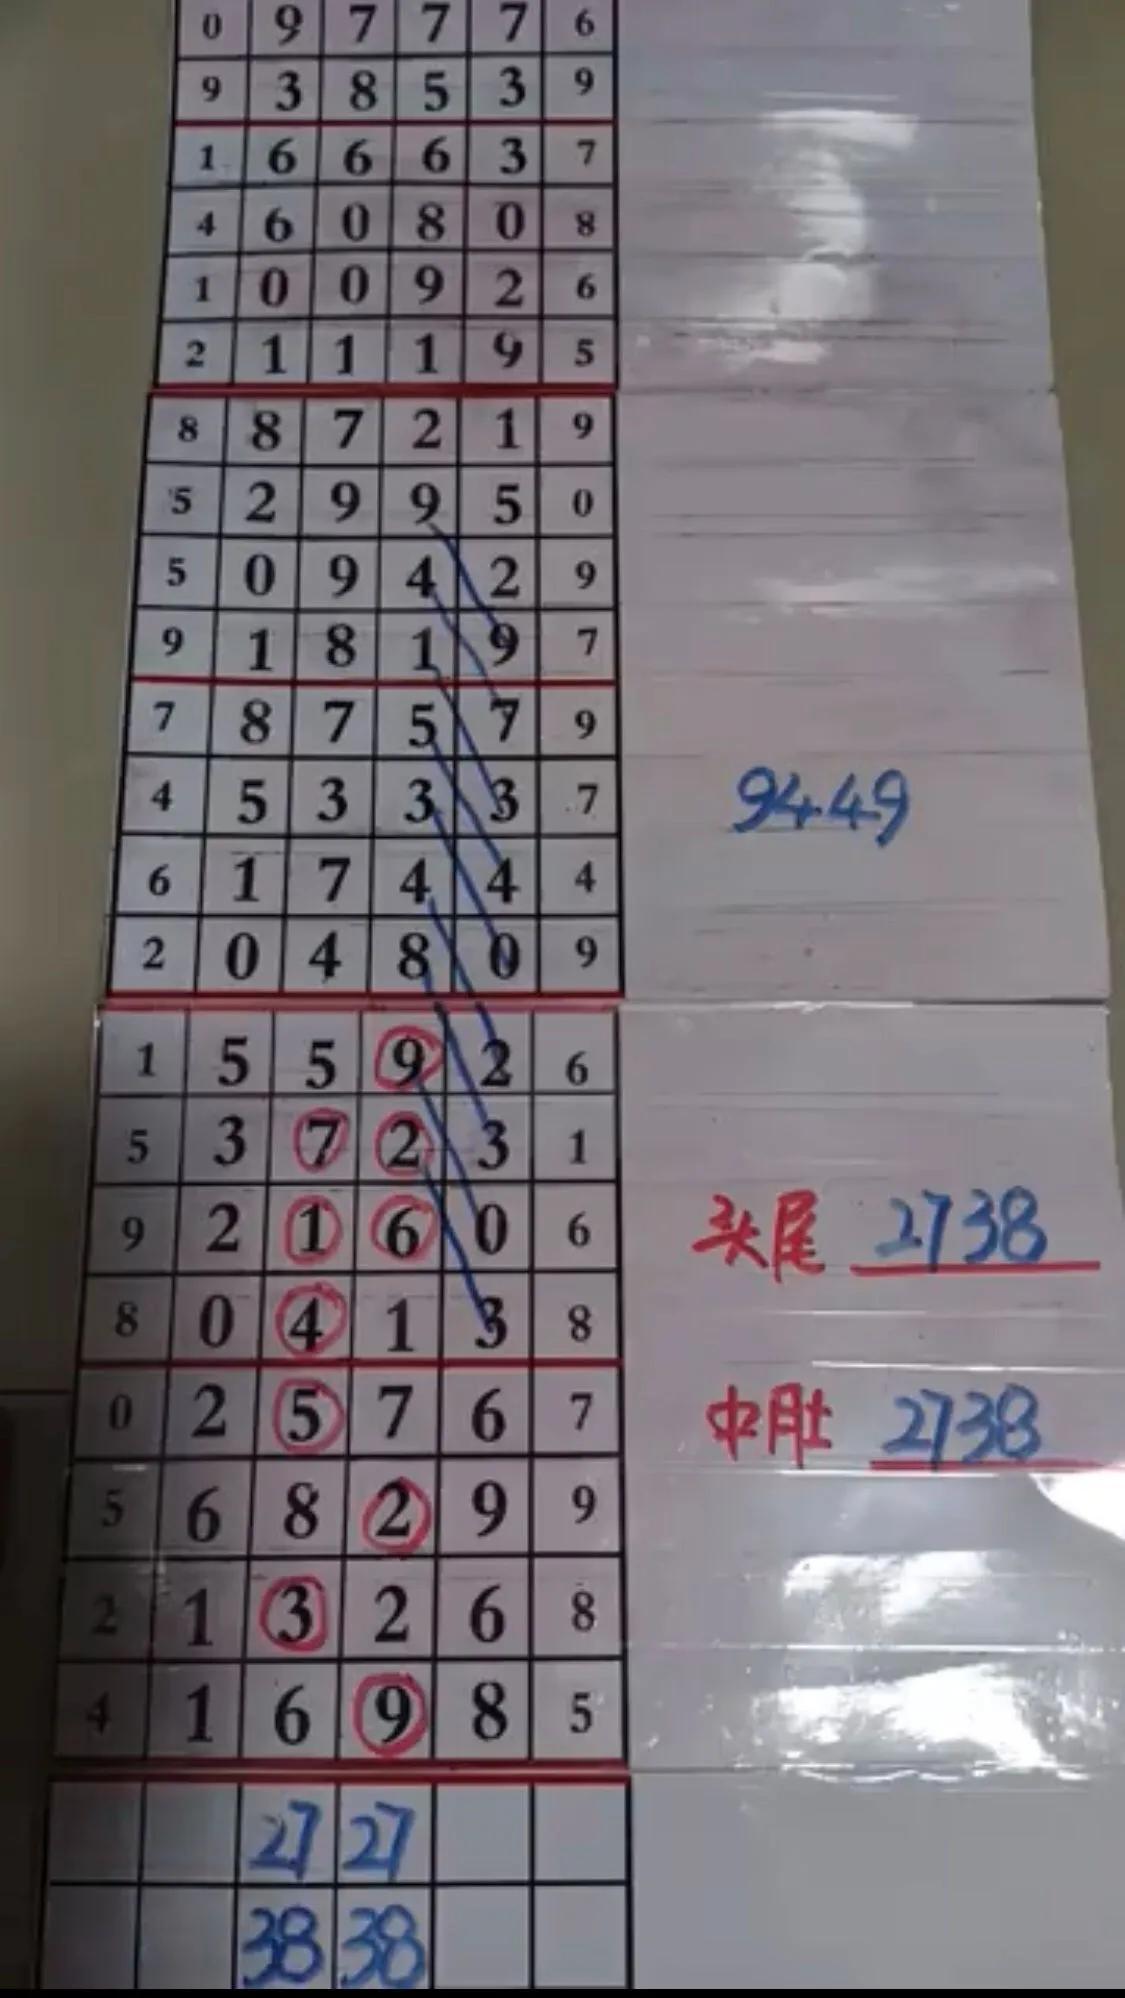 0 9 7 7 7 6
9 3 8 5 3 9
1 6 6 6 3 7
4 6 0 8 0 8
1 0 0 9 2 6
2 1 1 1 9 5
8 8 7 2 1 9
5 2 9 9 5 0
5 0 9 4 2 9
9 1 8 1 9 7
7 8 7 5 7 9
4 5 3 3 3 7
9449
6 1 7 4 4 4
2 0 4 8 0 9
1 5 5 9 2 6
5 3 7 2 3 1
9 2 1 6 0 6
头尾 2738
8 0 4 1 3 8
0 2 5 7 6 7
中肚 2738
5 6 8 2 9 9
2 1 3 2 6 8
4 1 6 9 8 5
27 27
38 38